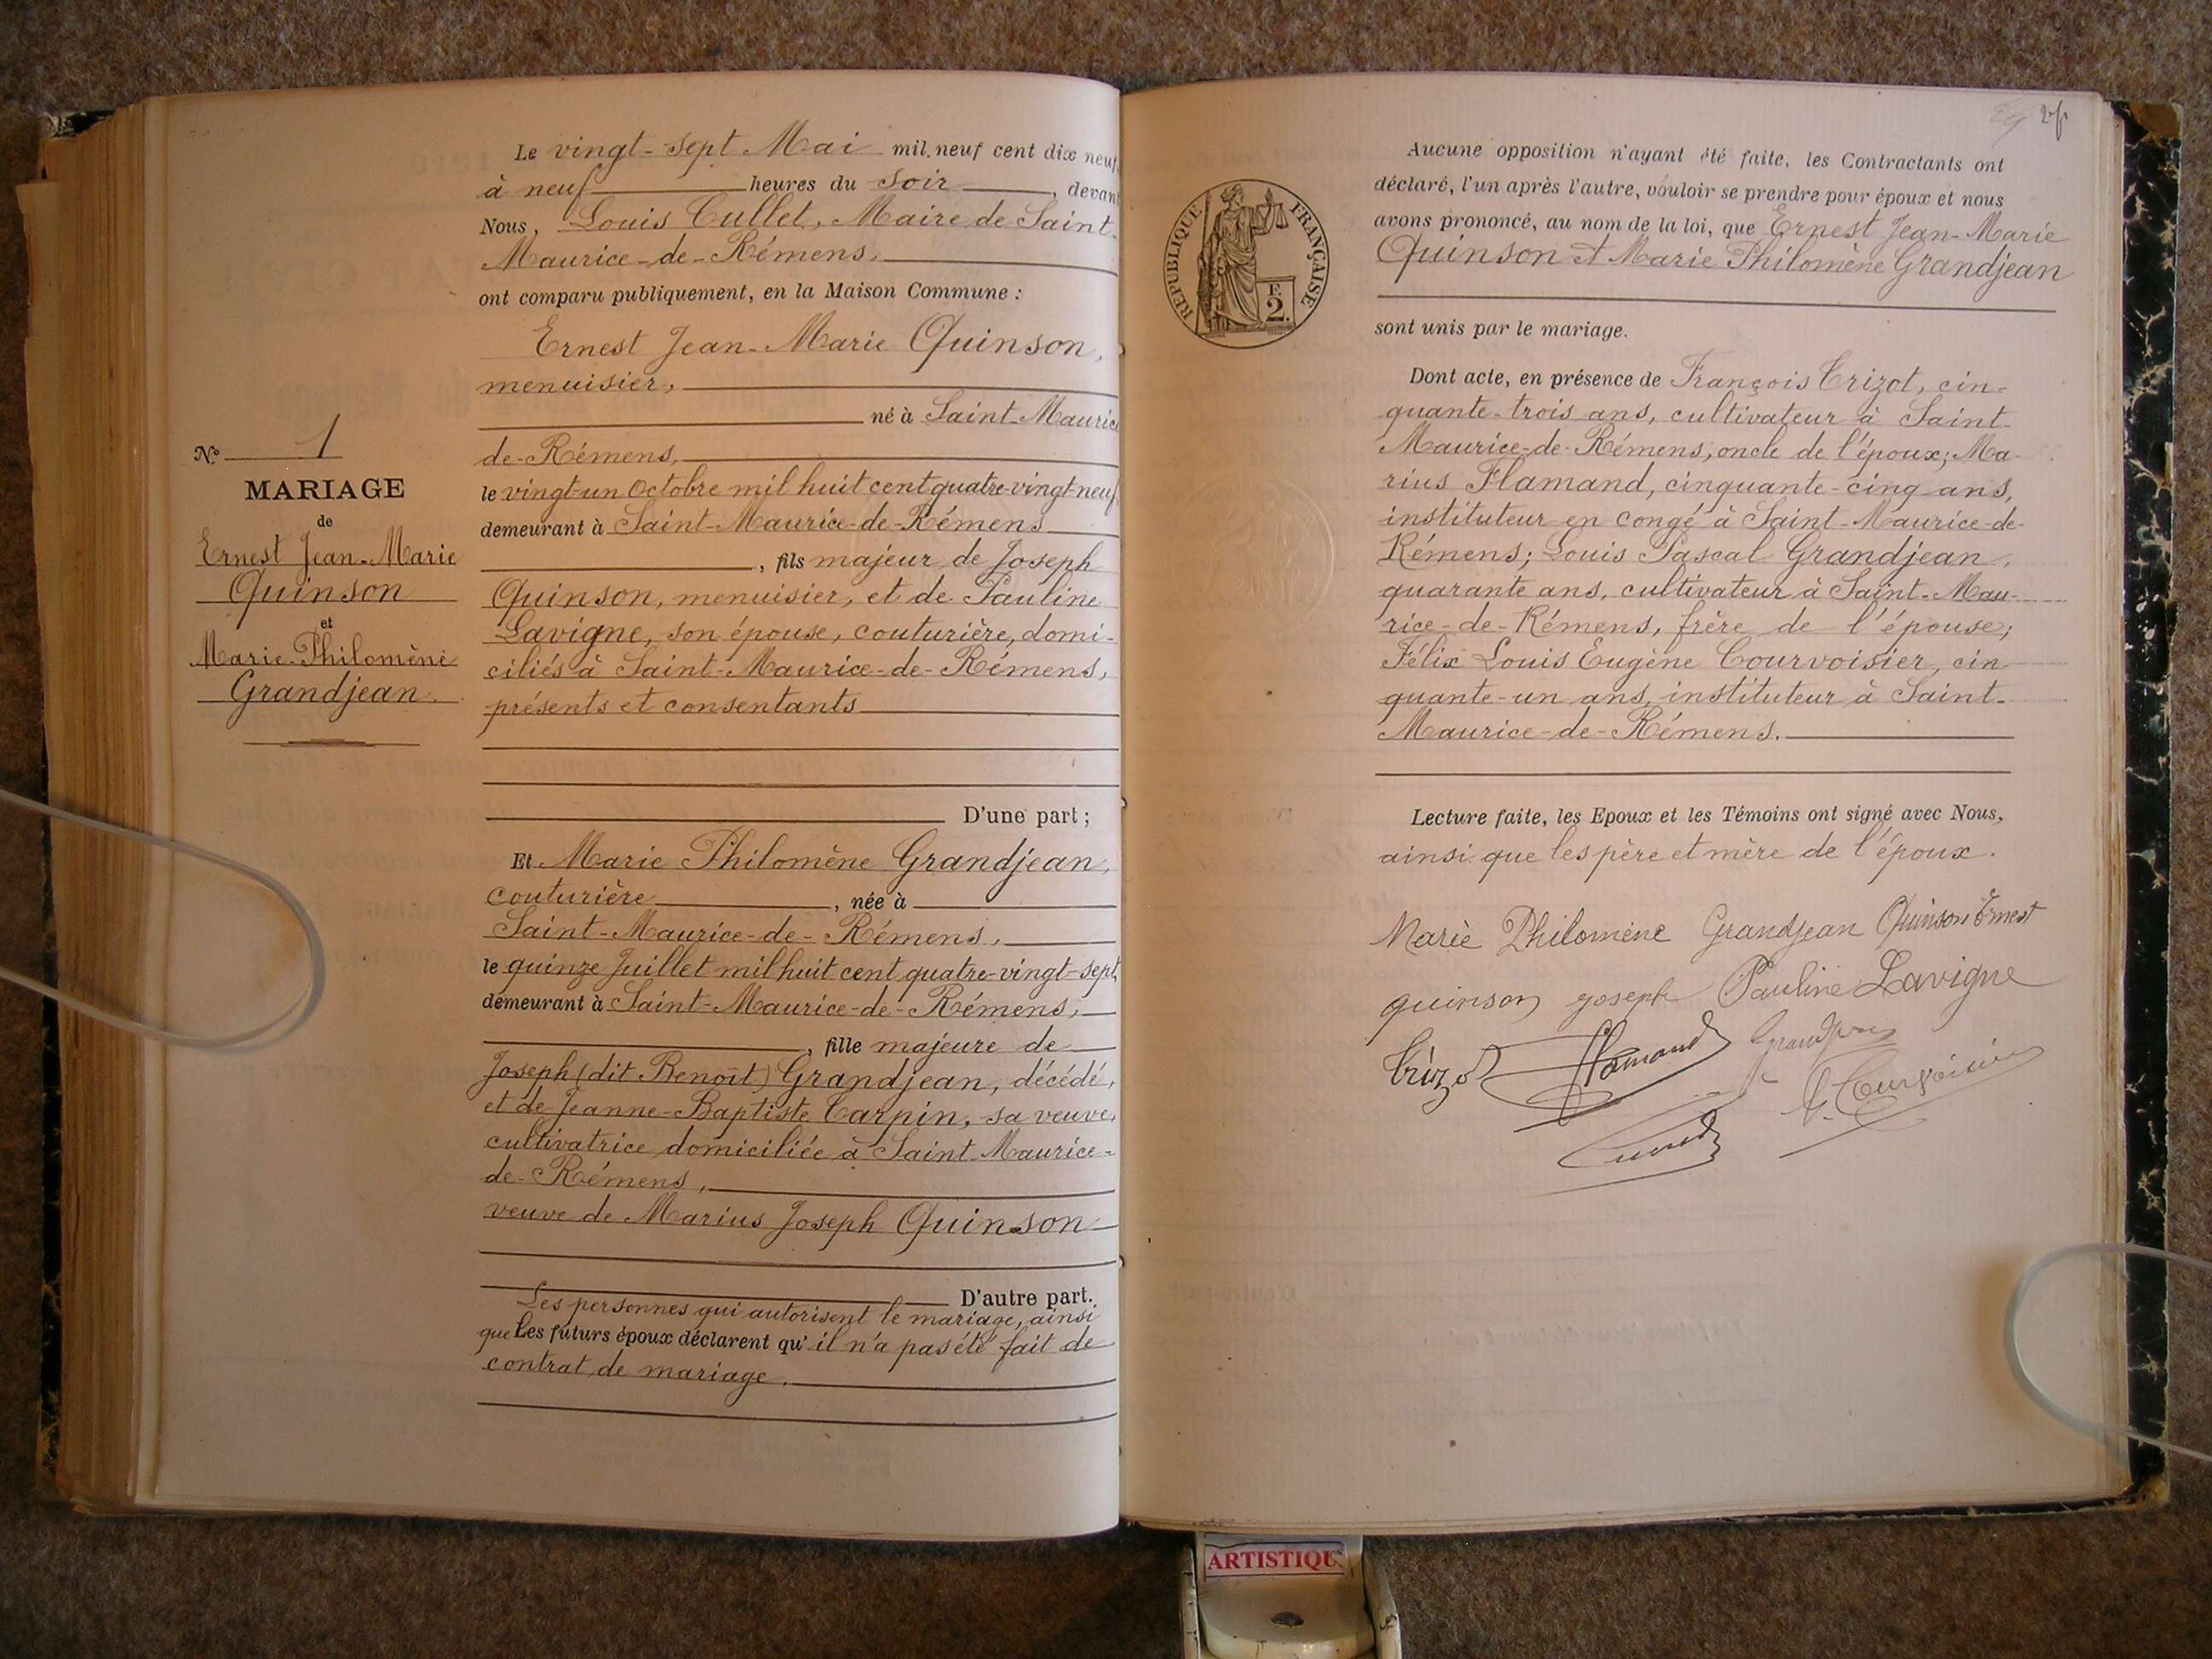 Le vingt-sept Mai mil.neuf cent dix neuf,
à neuf heures du soir, devant
Nous, Louis Cullet, Maire de Saint-
Maurice-de-Rémens,
ont comparu publiquement, en la Maison Commune :
Ernest Jean-Marie Quinson,
menuisier,
né à Saint-Maurice
de-Rémens,
le vingt-un Octobre mil huit cent quatre-vingt-neuf
demeurant à Saint-Maurice-de-Rémens
, fils majeur de Joseph
Quinson, menuisier, et de Pauline
Lavigne, son épouse, couturière, domi-
ciliés à Saint-Maurice-de-Rémens,
présents et consentants
D'une part ;
Et Marie Philomène Grandjean,
couturière, née à
Saint-Maurice-de-Rémens,
le quinze Juillet mil huit cent quatre-vingt-sept
demeurant à Saint-Maurice-de-Rémens,
, fille majeure de
Joseph (dit Benoît) Grandjean, décédé,
et de Jeanne-Baptiste Carpin, sa veuve,
cultivatrice domiciliée à Saint-Maurice-
de-Rémens,
veuve de Marius Joseph Quinson
D'autre part.
Les personnes qui autorisent le mariage, ainsi
que Les futurs époux déclarent qu'il n'a pas été fait de
contrat de mariage.
N° 1
MARIAGE
de
Ernest Jean-Marie
Quinson
et
Marie-Philomène
Grandjean.
RÉPUBLIQUE FRANÇAISE
F.
2.
Aucune opposition n'ayant été faite, les Contractants ont
déclaré, l'un après l'autre, vouloir se prendre pour époux et nous
avons prononcé, au nom de la loi, que Ernest Jean-Marie
Quinson et Marie Philomène Grandjean
sont unis par le mariage.
Dont acte, en présence de François Crizot, cin-
quante-trois ans, cultivateur à Saint-
Maurice-de-Rémens, oncle de l'époux; Ma-
rius Flamand, cinquante-cinq ans,
instituteur en congé à Saint-Maurice-de-
Rémens; Louis Pascal Grandjean,
quarante ans, cultivateur à Saint-Mau-
rice-de-Rémens, frère de l'épouse;
Félix Louis Eugène Courvoisier, cin-
quante-un ans, instituteur à Saint-
Maurice-de-Rémens.
Lecture faite, les Epoux et les Témoins ont signé avec Nous,
ainsi que les père et mère de l'époux.
Marie Philomène Grandjean Quinson Ernest
quinson joseph Pauline Lavigne
Crizot Flamand Grandjean
F. Courvoisier
ARTISTIQUE